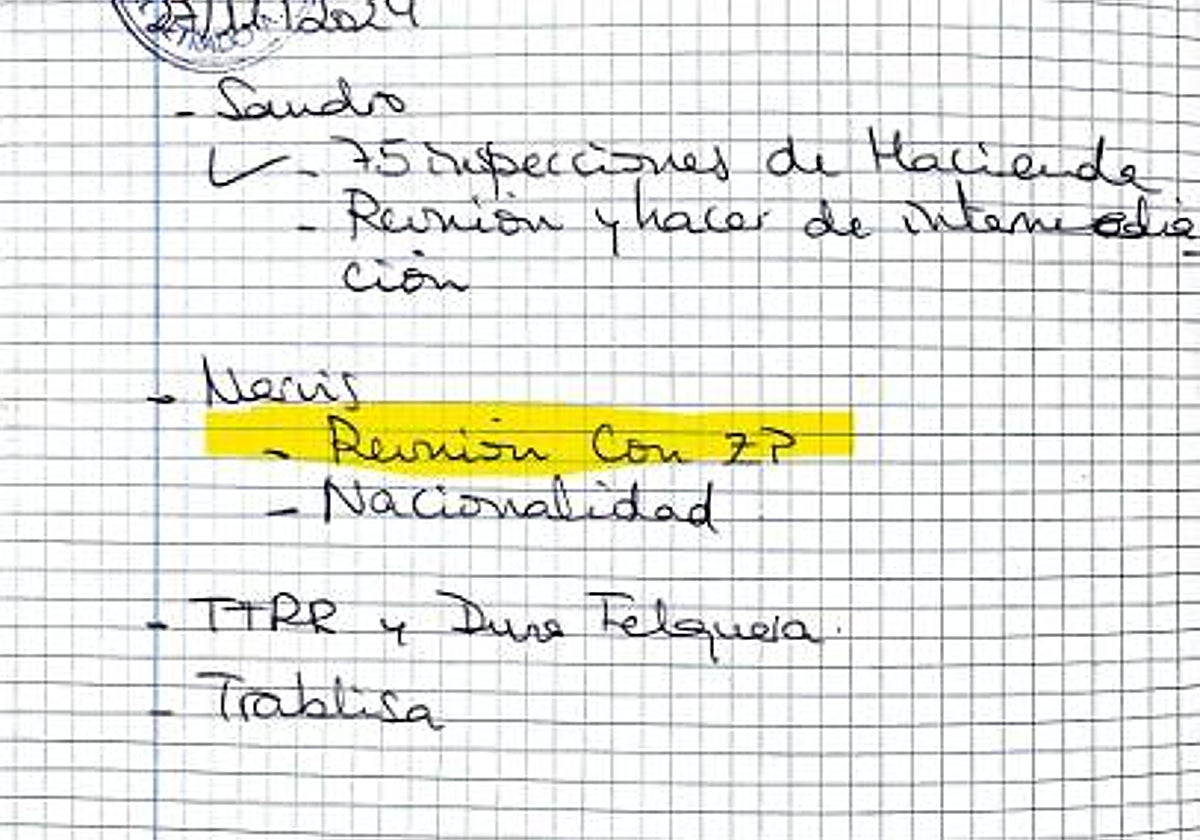 27/11/2024
- Sandro
✓ - 75 inspecciones de Hacienda
- Reunión y hacer de intermedia
ción
- Nervis
- Reunión Con ZP
- Nacionalidad
- TTRR y Duro Felguera.
- Trablisa